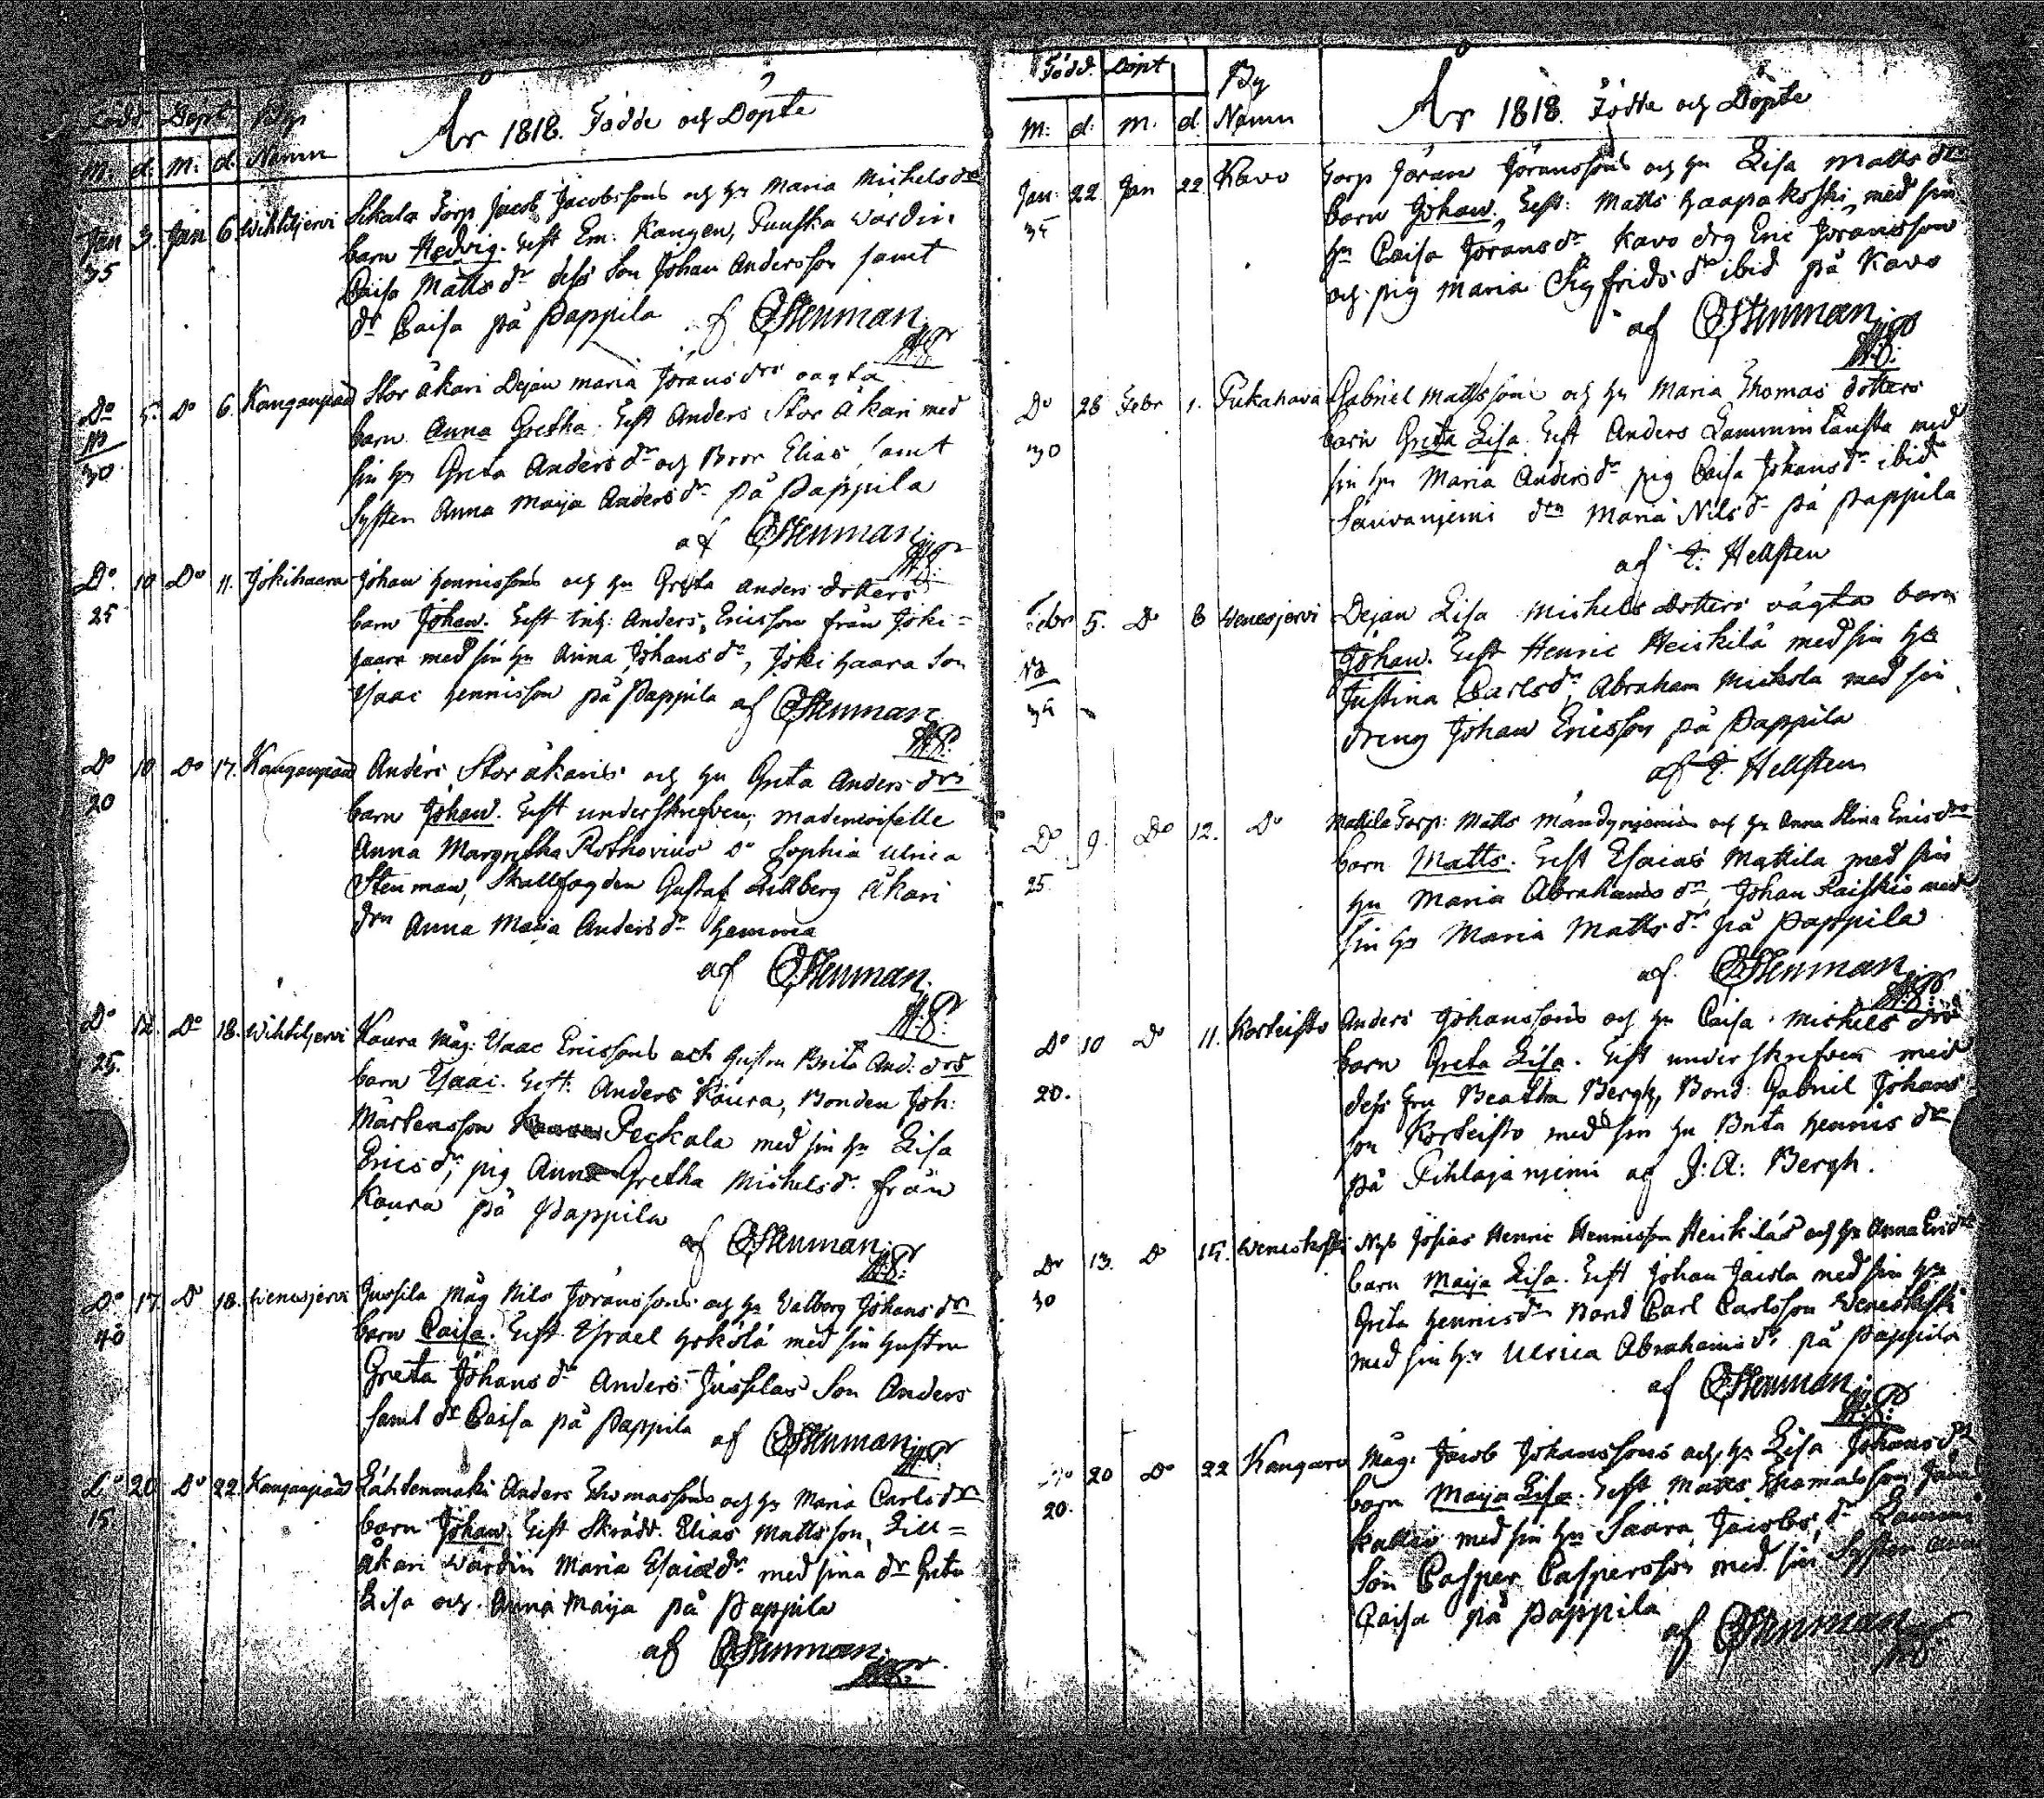 Född Döpt Byn
År 1818. Födde och Döpte
M: d: M: d. Namn
Jan 3. Jan 6. Wihtiljervi Sikala Torp Jacob Jacobssons och hu Maria Michels dr
35 barn Hedvig. Test Em: Kangen, Punska Wärdin
Caisa Matts dr dess Son Johan Andersson samt
dr Caisa på Pappila af CStenman
Do 5. Do 6. Kanganpää Stor äkari Dejan Maria Jörans drs oägta
30 barn Anna Gretha. Test Anders Stor Äkari med
sin hu Greta Anders dr och Bror Elias samt
Systen Anna Maija Anders dr på Pappila
af CStenman
Do 10 Do 11. Jokihaara Johan Hennissons och hu Greta Anders dotters
25 barn Johan. Test Anders Ericsson från Joki=
haara med sin hu Anna Johans dr, Jokihaara Son
Ysaac Hennisson på Pappila af CStenman
Do 10 Do 17. Kanganpää Anders Storäkaris och hu Greta Anders drs
20 barn Johan. Test underskrefven, mademoiselle
Anna Margretha Rothovius Do Sophia Ulrica
Stenman, Skallfogden Gustaf Lillberg Äkari
drn Anna Maria Anders dr hemma
af CStenman
Do 12. Do 18. Wihtiljervi Koura Måg: Ysaac Ericssons och hustru Brita And: drs
25. barn Ysaac. Test: Anders Koura, Bonden Joh:
Mårtensson Peckala med sin hu Lisa
Erics dr, pig Anna Gretha Michels dr från
Koura på Pappila
af CStenman
Do 17 Do 18. Wenesjervi Jussila Måg Nils Jöranssons och hu Valborg Johans dr
40 barn Caisa. Test Israel Yrkölä med sin hustru
Greta Johans dr Anders Jussilas Son Anders
samt dr Caisa på Pappila af CStenman
Do 20 Do 22. Kanganpää Lähdenmäki Anders Thomassons och hu Maria Carls dr
15. barn Johan. Test Skrädd. Elias Mattsson, Lill=
äkari Wärdin Maria Esaiæ dr med sina dr Greta
Lisa och Anna Maija på Pappila
af CStenman
Född Döpt By
År 1818. Födde och Döpte
M: d: M. d. Namn
Jan: 22 Jan 22 Kavo Torp Jöran Jöranssons och hu Lisa Matts dr
35 barn Johan. Test: Matts Haapakoski, med sin
hu Caisa Jörans dr Kavo drg Eric Jöransson
och pig Maria Sigfrids dr ibid på Kavo
af CStenman
Do 28 Febr 1. Pukahava Gabriel Mattssons och hu Maria Thomas dotters
30 barn Greta Lisa. Test Anders Lammintausta med
sin hu Maria Anders dr pig Caisa Johans dr ibid
Sauvanjemi drn Maria Nils dr på Pappila
af Hellsten
Febr 5. Do 8 Wenesjervi Dejan Lisa Michels dotters oägta barn
35 Johan. Test Henric Heickilä med sin hu
Justina Carls dr, Abraham Mickola med sin
dreng Johan Ericsson på Pappila
af Hellsten
Do 9. Do 12. Do Mattila Torp: Matts Mändynjemis och hu Anna Stina Erics dr
25. barn Matts. Test Esaias Mattila med sin
hu Maria Abrahams dr, Johan Raiskio med
sin hu Maria Matts dr på Pappila
af. CStenman
Do 10 Do 11. Korteisto Anders Johanssons och hu Caisa Michels drs
20. barn Greta Lisa. Test underskrefven med
dess fru Beatha Bergh, Bond: Gabriel Johans
son Korteisto med sin hu Brita Hennis dr
på Pihlajanjemi af J: A: Bergh.
Do 13. Do 15. Weneskoski Nyb Josias Henric Hennisson Heikiläs och hu Anna Erics dr
30 barn Maija Lisa. Test Johan Jaicola med sin hu
Greta Hennis dr Bond Carl Carlsson Weneskoski
med sin hu Ulrica Abrahams dr, på Pappila
af CStenman
Do 20 Do 22 Kangaro Måg: Jacob Johanssons och hu Lisa Johans dr
20. barn Maija Lisa. Test Matts Thomasson
kallio med sin hu Saara Jacobs dr
Son Casper Caspersson med sin Systen
Caisa på Pappila
af CStenman